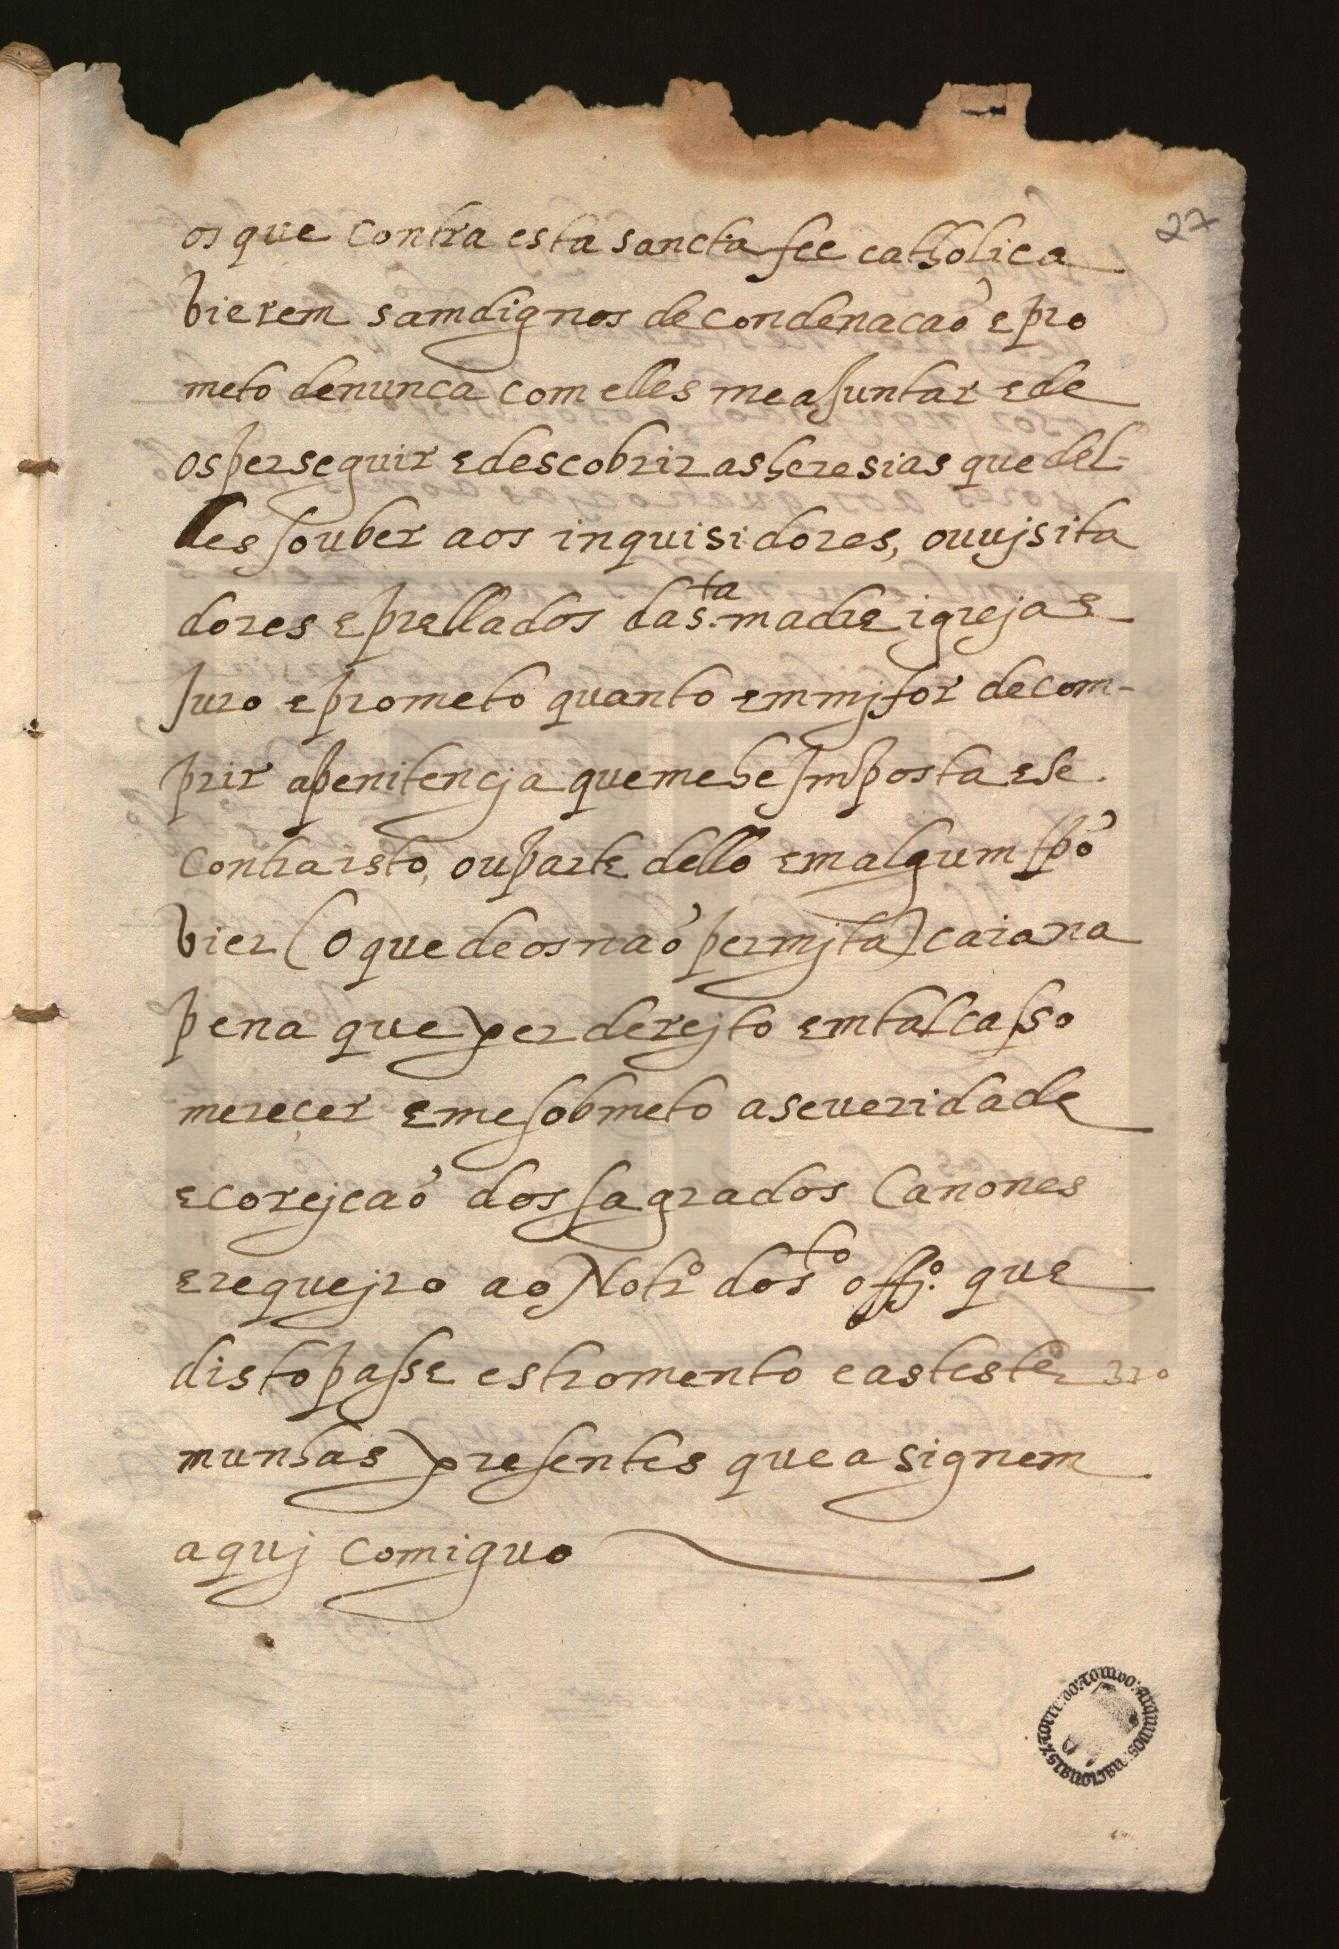 27
os que contra esta sancta fee catholica
vierem sam dignos de condenacaõ e pro
meto de nunca com elles me ajuntar e de
os perseguir e descobrir as heresias que del-
les souber aos inquisidores, ou vjsita
dores e prellados da s.ta madre igreja e
Juro e prometo quanto em mj for de com-
prir a penitencja que me he Imposta e se
contra isto, ou parte dello em algum tpõ
vier (o que deos naõ permjta) caia na
pena que per derejto em tal casso
mereçer e me sobmeto a severidade
e corejcaõ dos sagrados Canones
e requejro ao Notro do s.to offj.o que
disto passe estromento e as teste
munhas presentes que asignem
aquj comiguo
TORRE: DO: TOMBO: ARQUIVOS: NACIONAIS